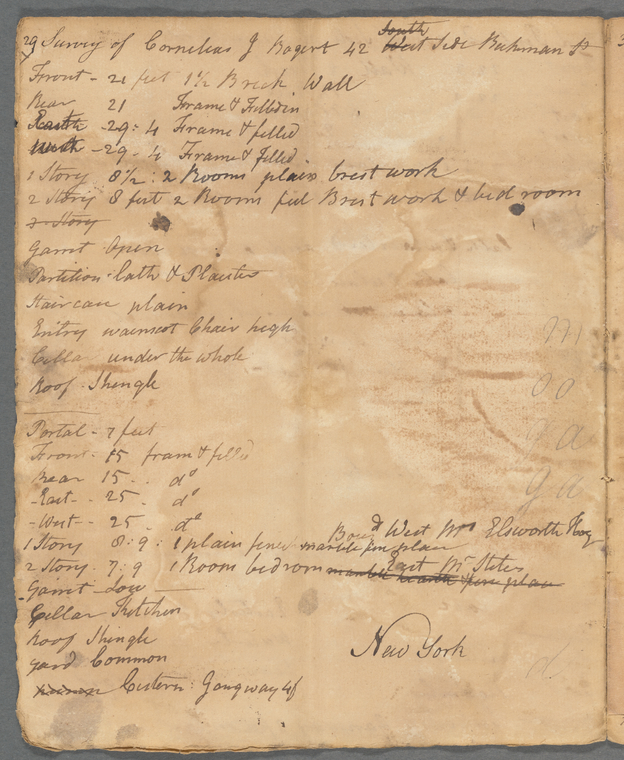 29 Survey of Cornelius J Bogert 42 South West Side Beekman St
Front - 21 feet 1½ Brick Wall
Rear 21 Frame & Filledin
East - 29: 4 Frame & filled
West - 29 - 4 Frame & filled
1 Story 8½ : 2 Rooms plain brest work
2 Story 8 feet 2 Rooms full Brest work & bed room
3 Story
Garret Open
Partition Lath & Plaister
Staircase plain
Entry wainscot Chair high
Cella under the whole
Roof Shingle
Portal - 7 feet
Front - 15 fram & filled
Rear 15 - do
East - 25 - do
West - 25 - do
Bound West Mr Elsworth
1 Story 8:9: 1 plain marble fire place
East Mr Stites
2 Story 7:9 1 Room bedroom marble hearth fire place
Garret Low
Cellar Kitchen
Roof Shingle
New York
yard Common
Cestern Gangway